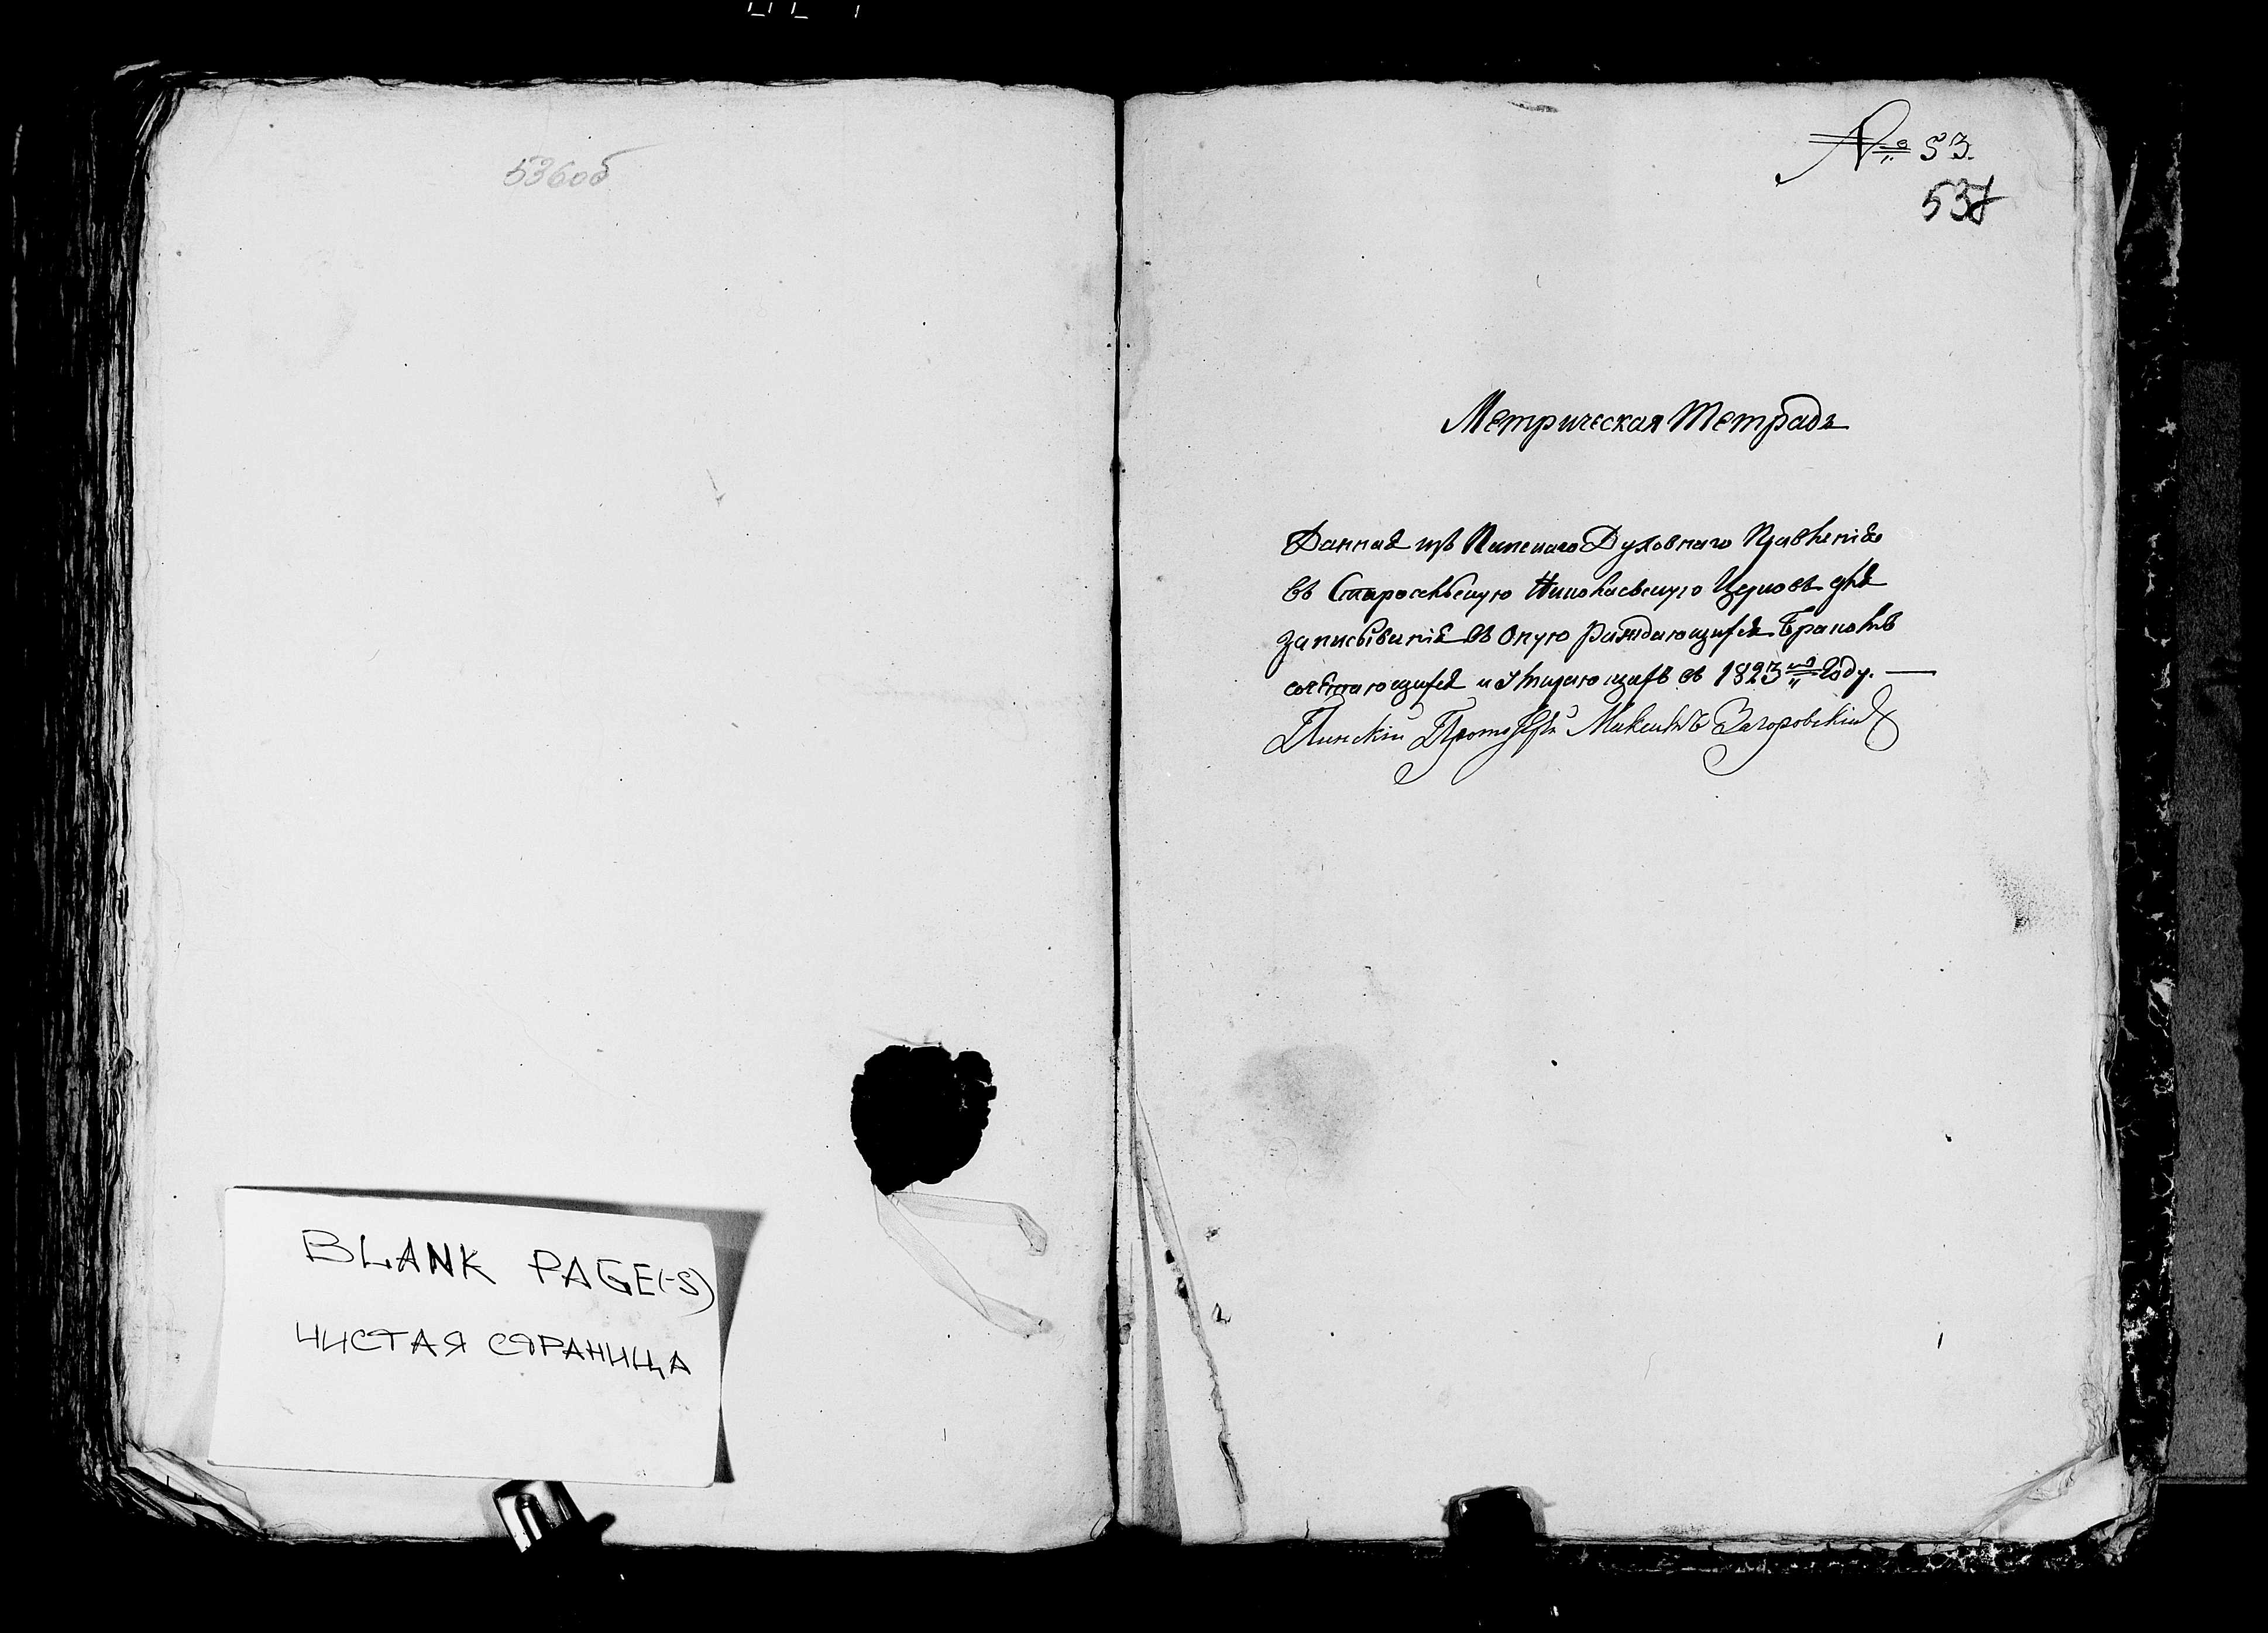 536об
BLANK PAGE(-S)
ЧИСТАЯ СТРАНИЦА
№ 53.
537
Метрическая Тетрадь
Данная изъ Пинскаго Духовнаго Правленія
въ Старосельскую Николаевскую Церковь для
записыванія въ оную раждающихся Бракомъ
сочетающихся и Умирающихъ въ 1823мъ Году. —
Пинскій Максимъ Загоровскій